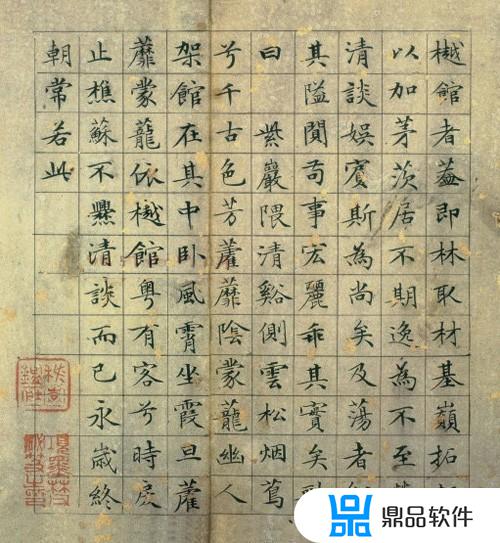 樾館者葢即林取材基巔拓
以加茅茨居不期逸為不至
清談娛賓斯為尚矣及蕩者
其隘闃苟事宏麗乖其實矣
曰 紫巖隈清谿側雲松烟蔦
兮千古色芳藿蘼陰蒙龍幽人
架館在其中卧風霄坐霞旦藿
蘼蒙龍依樾館粵有客兮時戾
止樵蘇不爨清談而已永歲終
朝常若此
鼎品软件